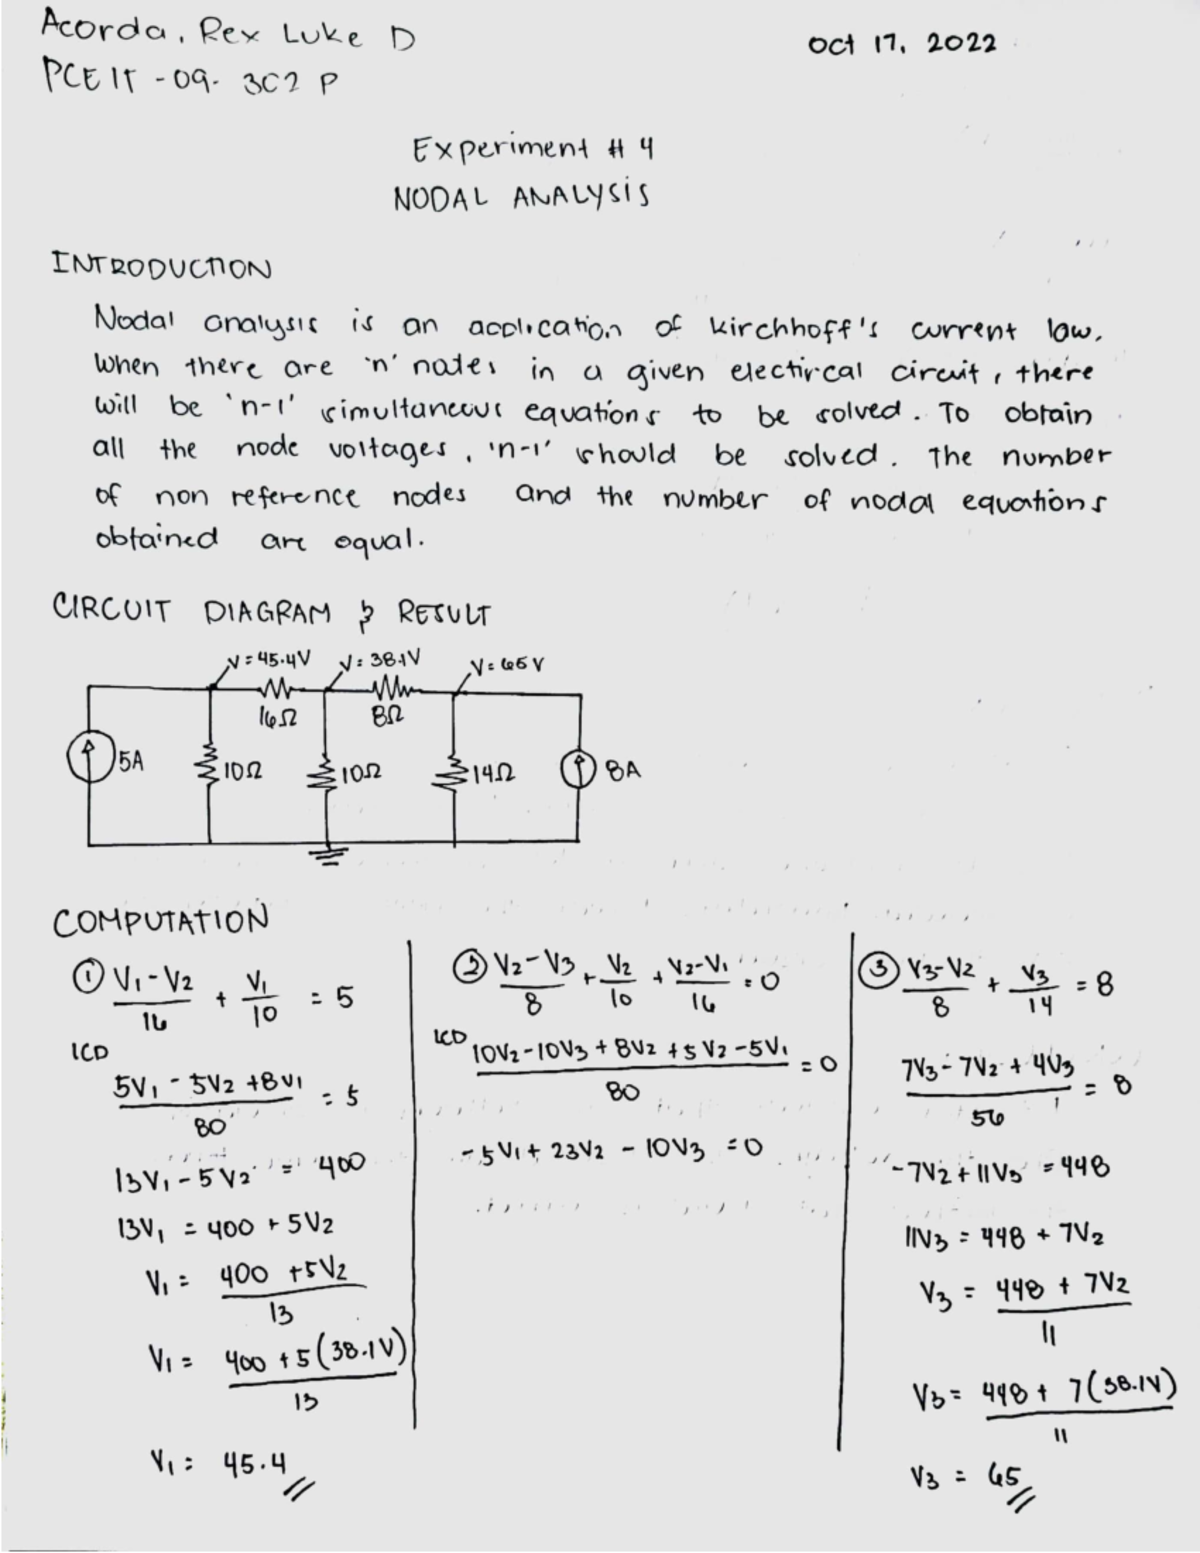 Acorda, Rex Luke D
Oct 17, 2022
PCEIT - 09 - 3C2 P
Experiment # 4
NODAL ANALYSIS
INTRODUCTION
Nodal analysis is an application of kirchhoff's current law.
When there are 'n' nodes in a given electircal circuit, there
will be 'n-1' simultaneous equations to be solved. To obtain
all the node voltages, 'n-1' should be solved. The number
of non reference nodes and the number of nodal equations
obtained are equal.
CIRCUIT DIAGRAM & RESULT
V = 45.4V V = 38.1V V = 65V
16Ω 8Ω
5A 10Ω 10Ω 14Ω 8A
COMPUTATION
① V1 - V2 / 16 + V1 / 10 = 5
LCD
5V1 - 5V2 + 8V1 / 80 = 5
13V1 - 5V2 = 400
13V1 = 400 + 5V2
V1 = 400 + 5V2 / 13
V1 = 400 + 5(38.1V) / 13
V1 = 45.4
② V2 - V3 / 8 + V2 / 10 + V2 - V1 / 16 = 0
LCD
10V2 - 10V3 + 8V2 + 5V2 - 5V1 / 80 = 0
-5V1 + 23V2 - 10V3 = 0
③ V3 - V2 / 8 + V3 / 14 = 8
7V3 - 7V2 + 4V3 / 56 = 8
-7V2 + 11V3 = 448
11V3 = 448 + 7V2
V3 = 448 + 7V2 / 11
V3 = 448 + 7(38.1V) / 11
V3 = 65